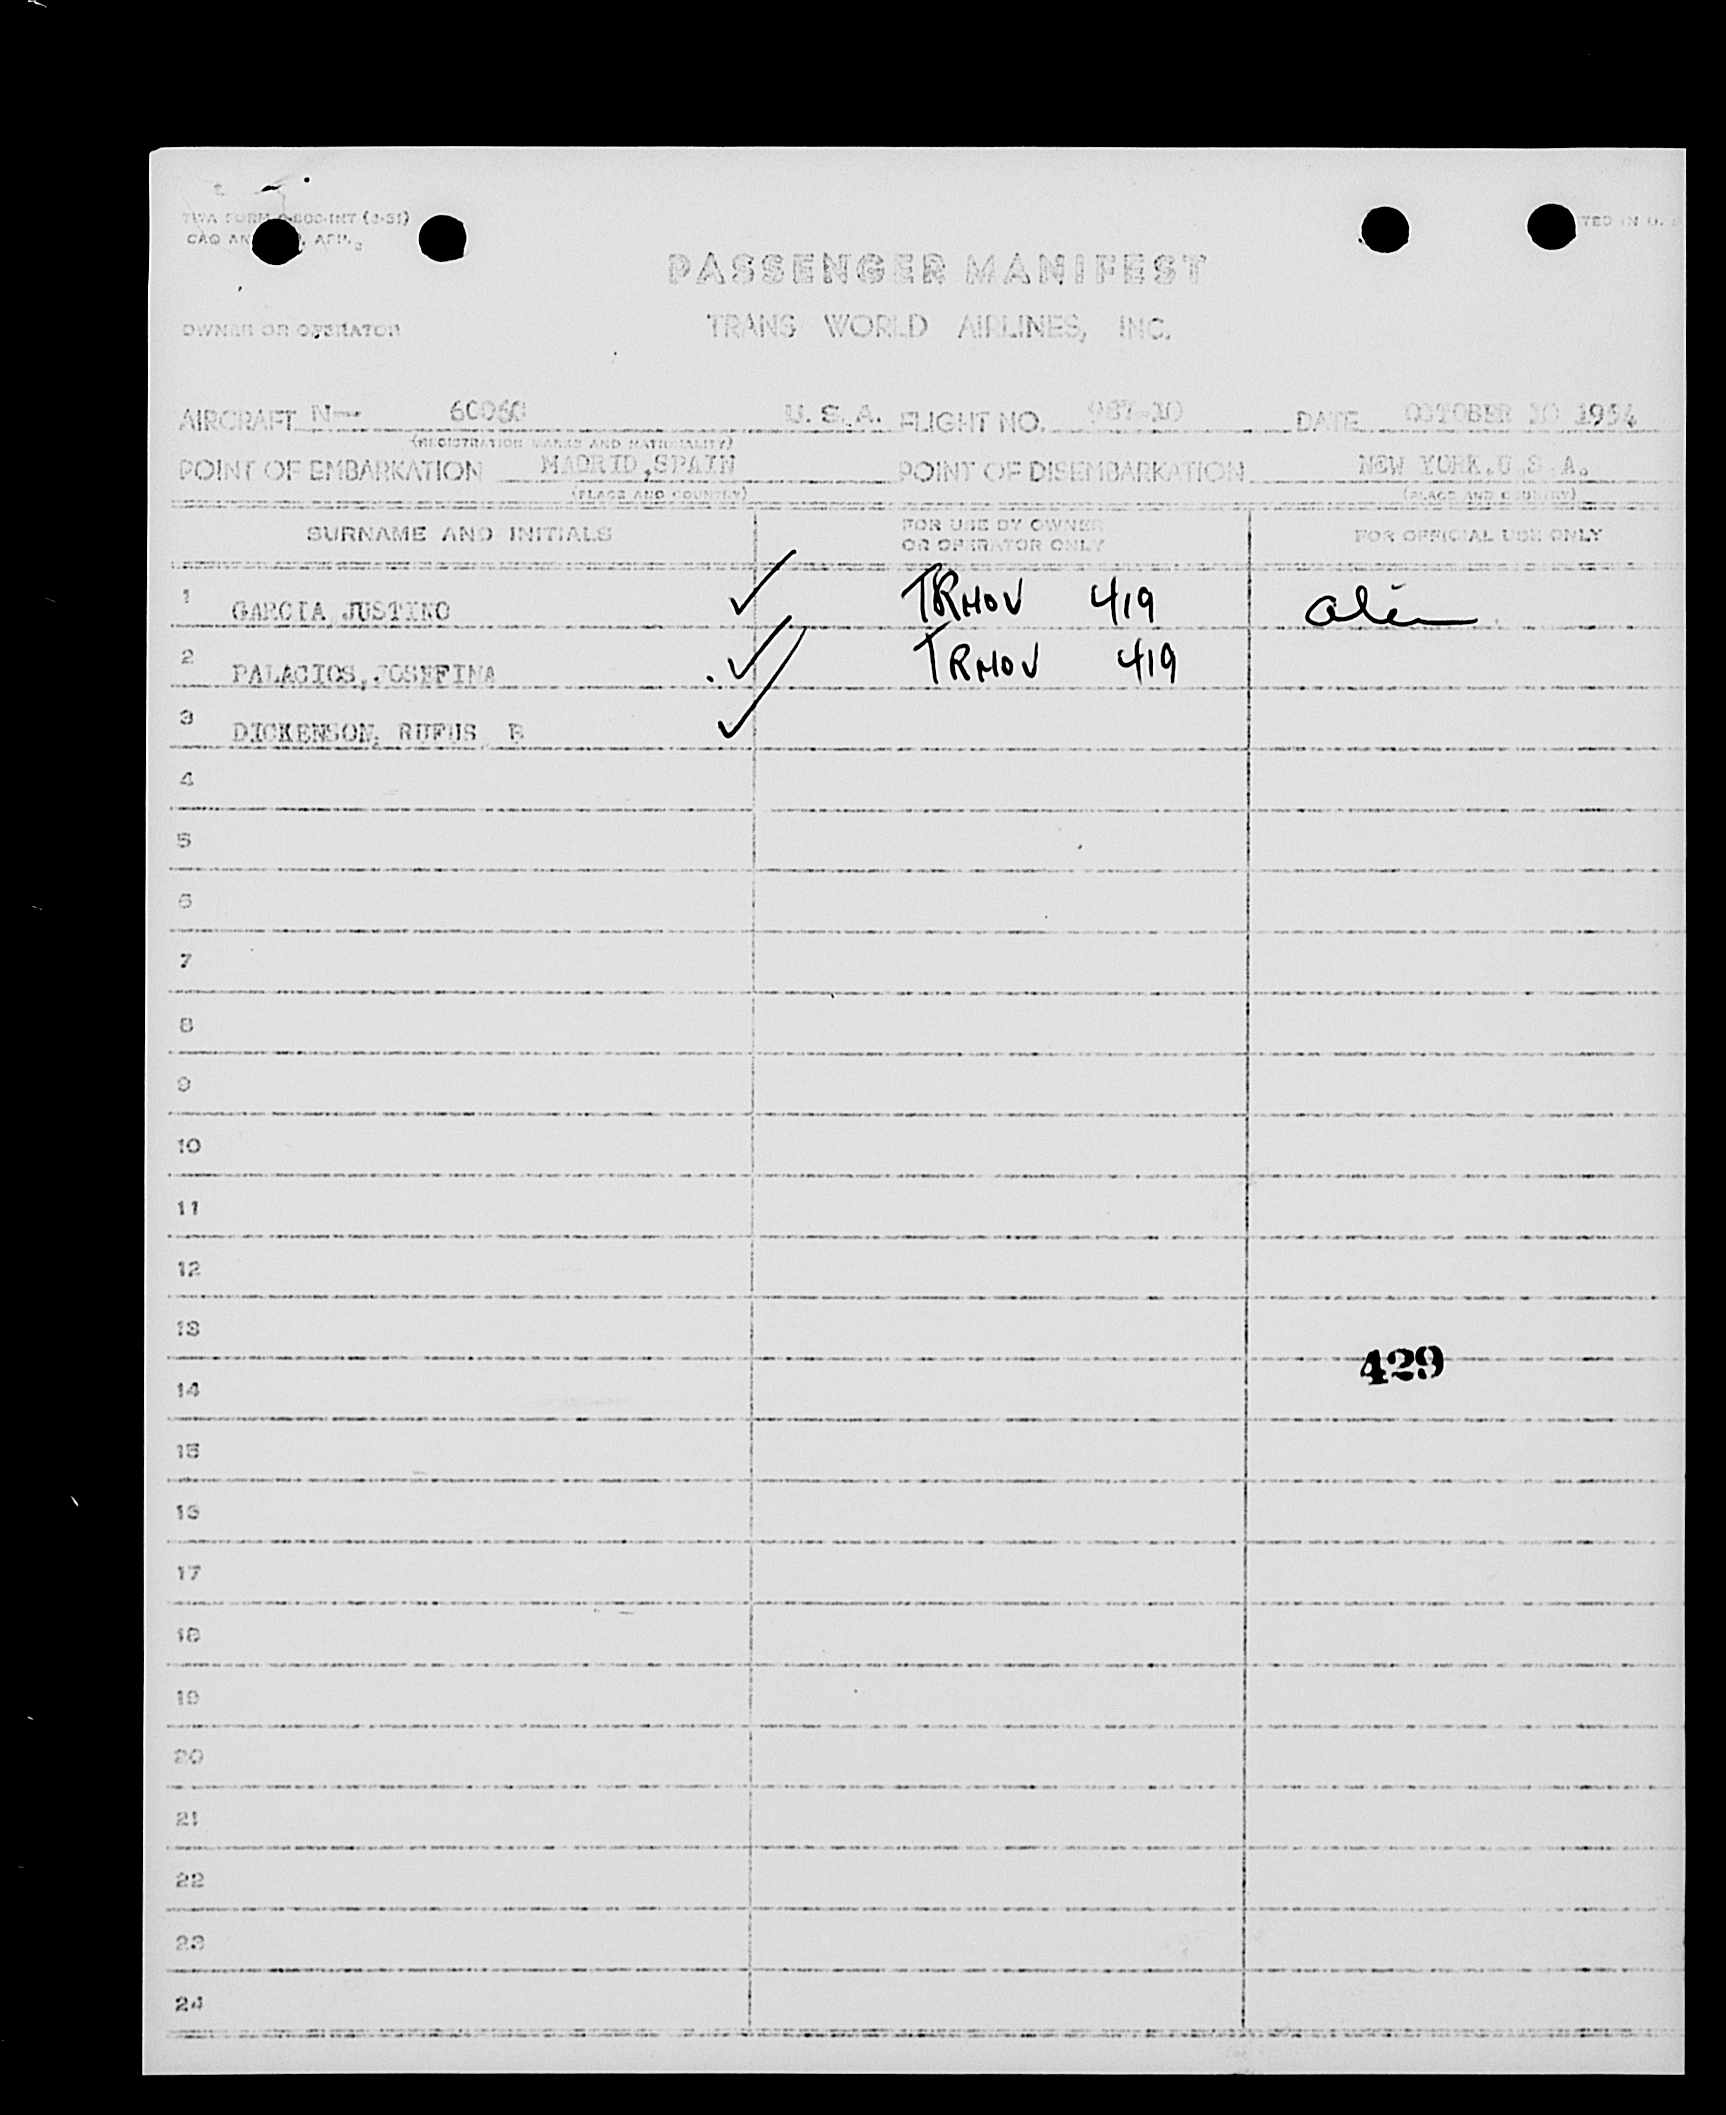 TWA FORM
PASSENGER MANIFEST
OWNER OR OPERATOR
TRANS WORLD AIRLINES, INC.
AIRCRAFT N-- U. S. A. FLIGHT NO. DATE OCTOBER 10 1954
(REGISTRATION MARKS AND NATIONALITY)
POINT OF EMBARKATION MADRID, SPAIN POINT OF DISEMBARKATION NEW YORK, U. S. A.
(PLACE AND COUNTRY) (PLACE AND COUNTRY)
SURNAME AND INITIALS FOR USE BY OWNER OR OPERATOR ONLY FOR OFFICIAL USE ONLY
1 GARCIA JUSTINO ✓ TRMOV 419
2 PALACIOS, JOSEFINA ✓ TRMOV 419
3 DICKENSON, RUFUS B ✓
4
5
6
7
8
9
10
11
12
13
429
14
15
16
17
18
19
20
21
22
23
24